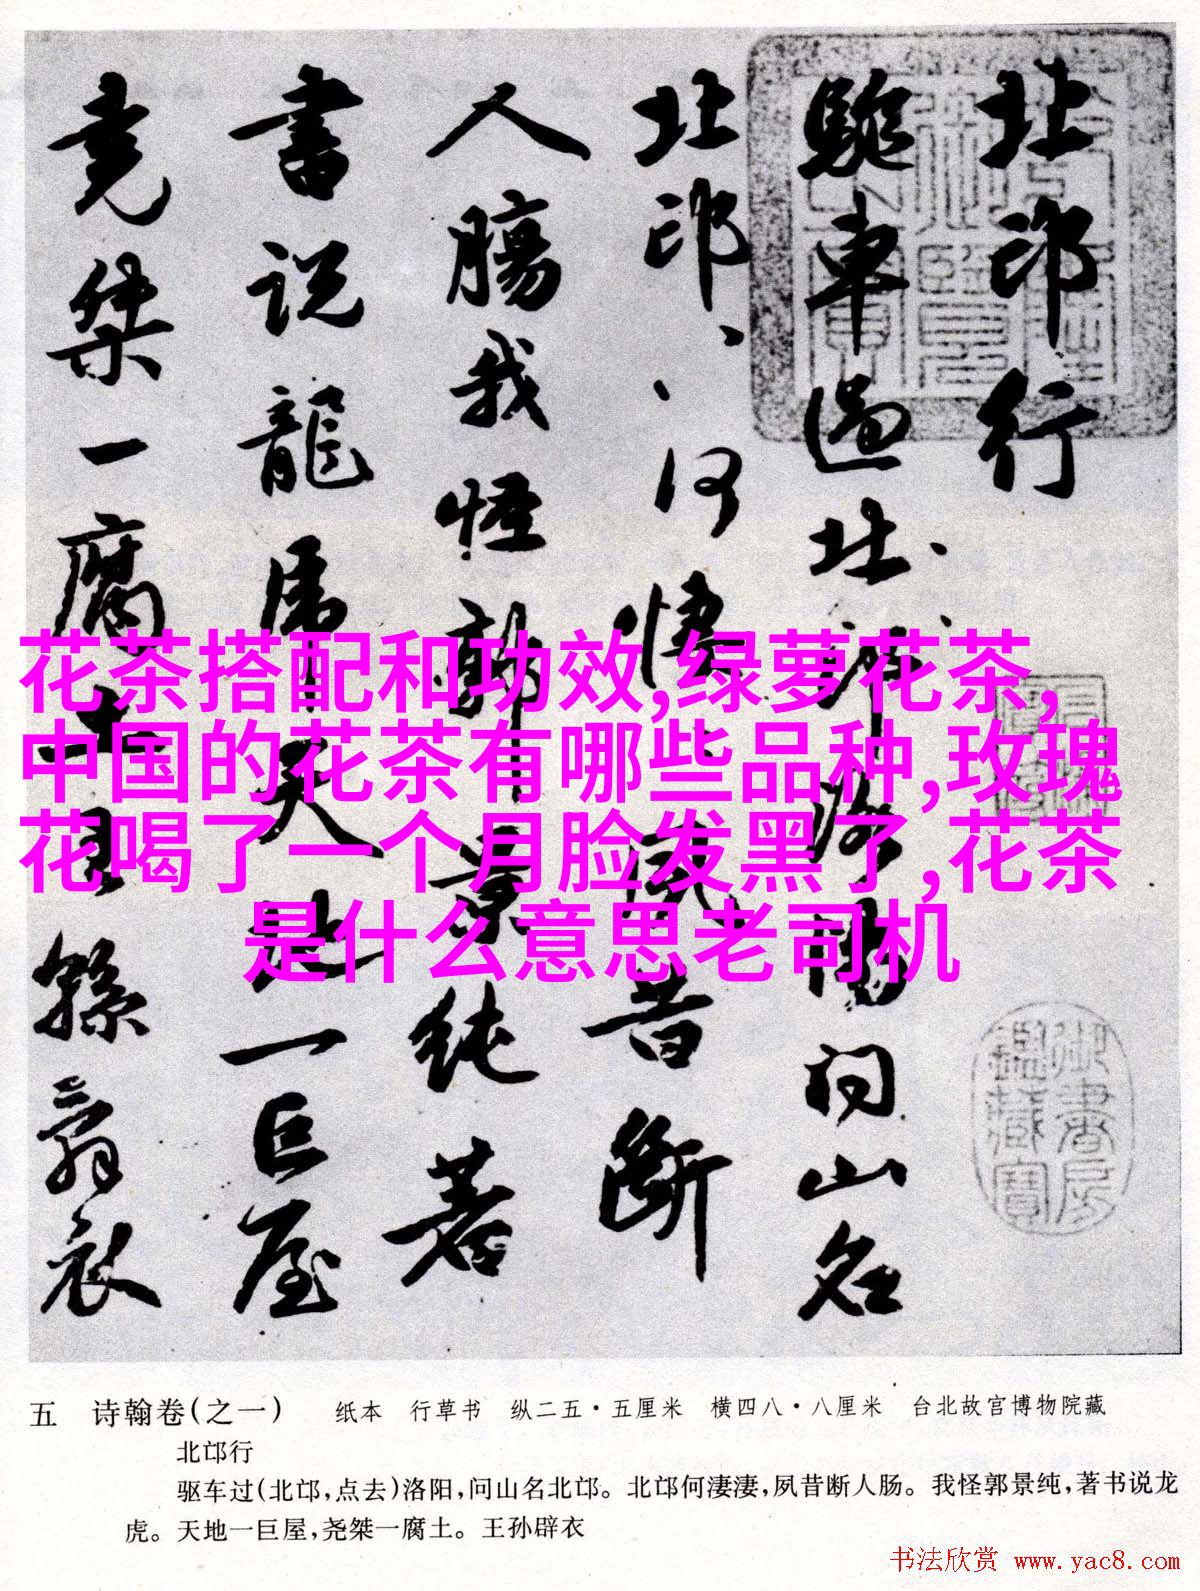 北邙行
駈車過北邙、、洛陽問山名
北邙、、何悽、、夙昔斷
人腸我怪郭景純著
書说龍虎天地一巨屋
堯桀一腐土王孫辟衣
御書房鑑藏寶
花茶搭配和功效,绿萝花茶,
中国的花茶有哪些品种,玫瑰
花喝了一个月脸发黑了,花茶
是什么意思老司机
五 诗翰卷(之一) 纸本 行草书 纵二五·五厘米 横四八·八厘米 台北故宫博物院藏
北邙行
驱车过(北邙,点去)洛阳,问山名北邙。北邙何凄凄,夙昔断人肠。我怪郭景纯,著书说龙
虎。天地一巨屋,尧桀一腐土。王孙辟衣
书法欣赏 www.yac8.com